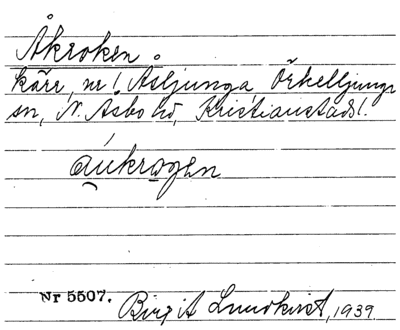 Åkroken.
kärr, nr 1 Åsljunga Örkelljunga
sn, N. Åsbo hd, Kristianstads l.
áukrogen
Nr 5507.
Birgit Lundkvist, 1939